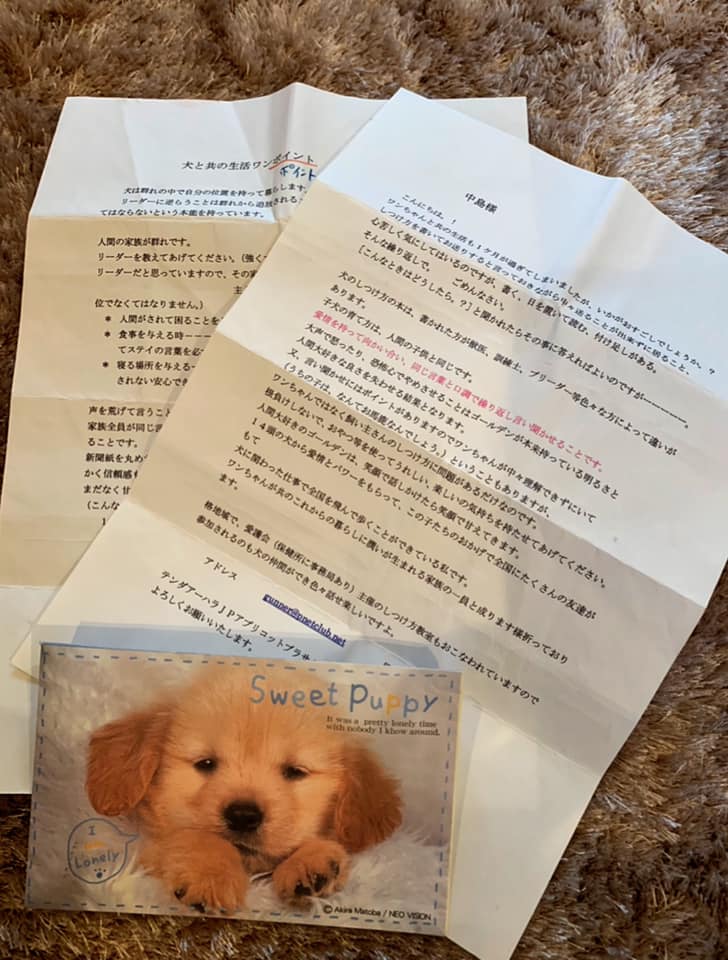 犬と共の生活ワンポイント
ポイント
犬は群れの中で自分の位置を持って暮らします。
リーダーに逆らうことは群れから追放される
てはならないという本能を持っています。
人間の家族が群れです。
リーダーを教えてあげてください。（強く
リーダーだと思っていますので、その家
主
位でなくてはなりません。）
＊ 人間がされて困ることを
＊ 食事を与える時ーーー
てステイの言葉を必
＊ 寝る場所を与える
されない安心でき
声を荒げて言うこと
家族全員が同じ言
ることです。
新聞紙を丸め
かく信頼感
まだなく甘
（こんな
1
中島様
こんにちは、！
ワンちゃんと共の生活も1ケ月が過ぎてしまいましたが、いかがおすごしでしょうか、？
しつけ方を書いてお送りすると言っておきながら中々送ることが出来ずに居ること、
心苦しく気にしてはいるのですが、書く、日を置いて読む、付け足しがある。
そんな繰り返しで、 ごめんなさい。
[こんなときはどうしたら、？]と聞かれたらその事に答えればよいのですがーーーーーー。
犬のしつけ方の本は、書かれた方が獣医、訓練士、ブリーダー等色々な方によって違いが
あります。
子犬の育て方は、人間の子供と同じです。
愛情を持って向かい合い、同じ言葉と口調で繰り返し言い聞かせることです。
大声で怒ったり、恐怖心でやめさせることはゴールデンが本来持っている明るさと
人間大好きな良さを失わせる結果となります。
又、言い聞かせにはポイントがありますのでワンちゃんが中々理解できずにいて
（うちの子は、なんてお馬鹿なんでしょう。）ということもありますが、
ワンちゃんではなく飼い主さんのしつけ方に問題があるだけなのです。
根負けしないで、おやつ等を使ってうれしい、楽しい気持ちを持たせてあげてください。
人間大好きのゴールデンは、笑顔で話しかけたら笑顔で甘えてきます。
14頭の犬から愛情とパワーをもらって、この子たちのおかげで全国にたくさんの友達が
もて
犬に関わった仕事で全国を飛んで歩くことができている私です。
ワンちゃんが共のこれからの暮らしに潤いが生まれる家族の一員と成ります様祈っており
ます。
格地域で、愛護会（保健所に事務局あり）主催のしつけ方教室もおこなわれていますので
参加されるのも犬の仲間ができ色々話せ楽しいですよ。
アドレス
gunner@pnetclub.net
テンダアーハラJPアプリコットブラサ
よろしくお願いいたします。
Sweet Puppy
It was a pretty lonely time
with nobody I know around.
I
Lonely
© Akira Matoba / NEO VISION